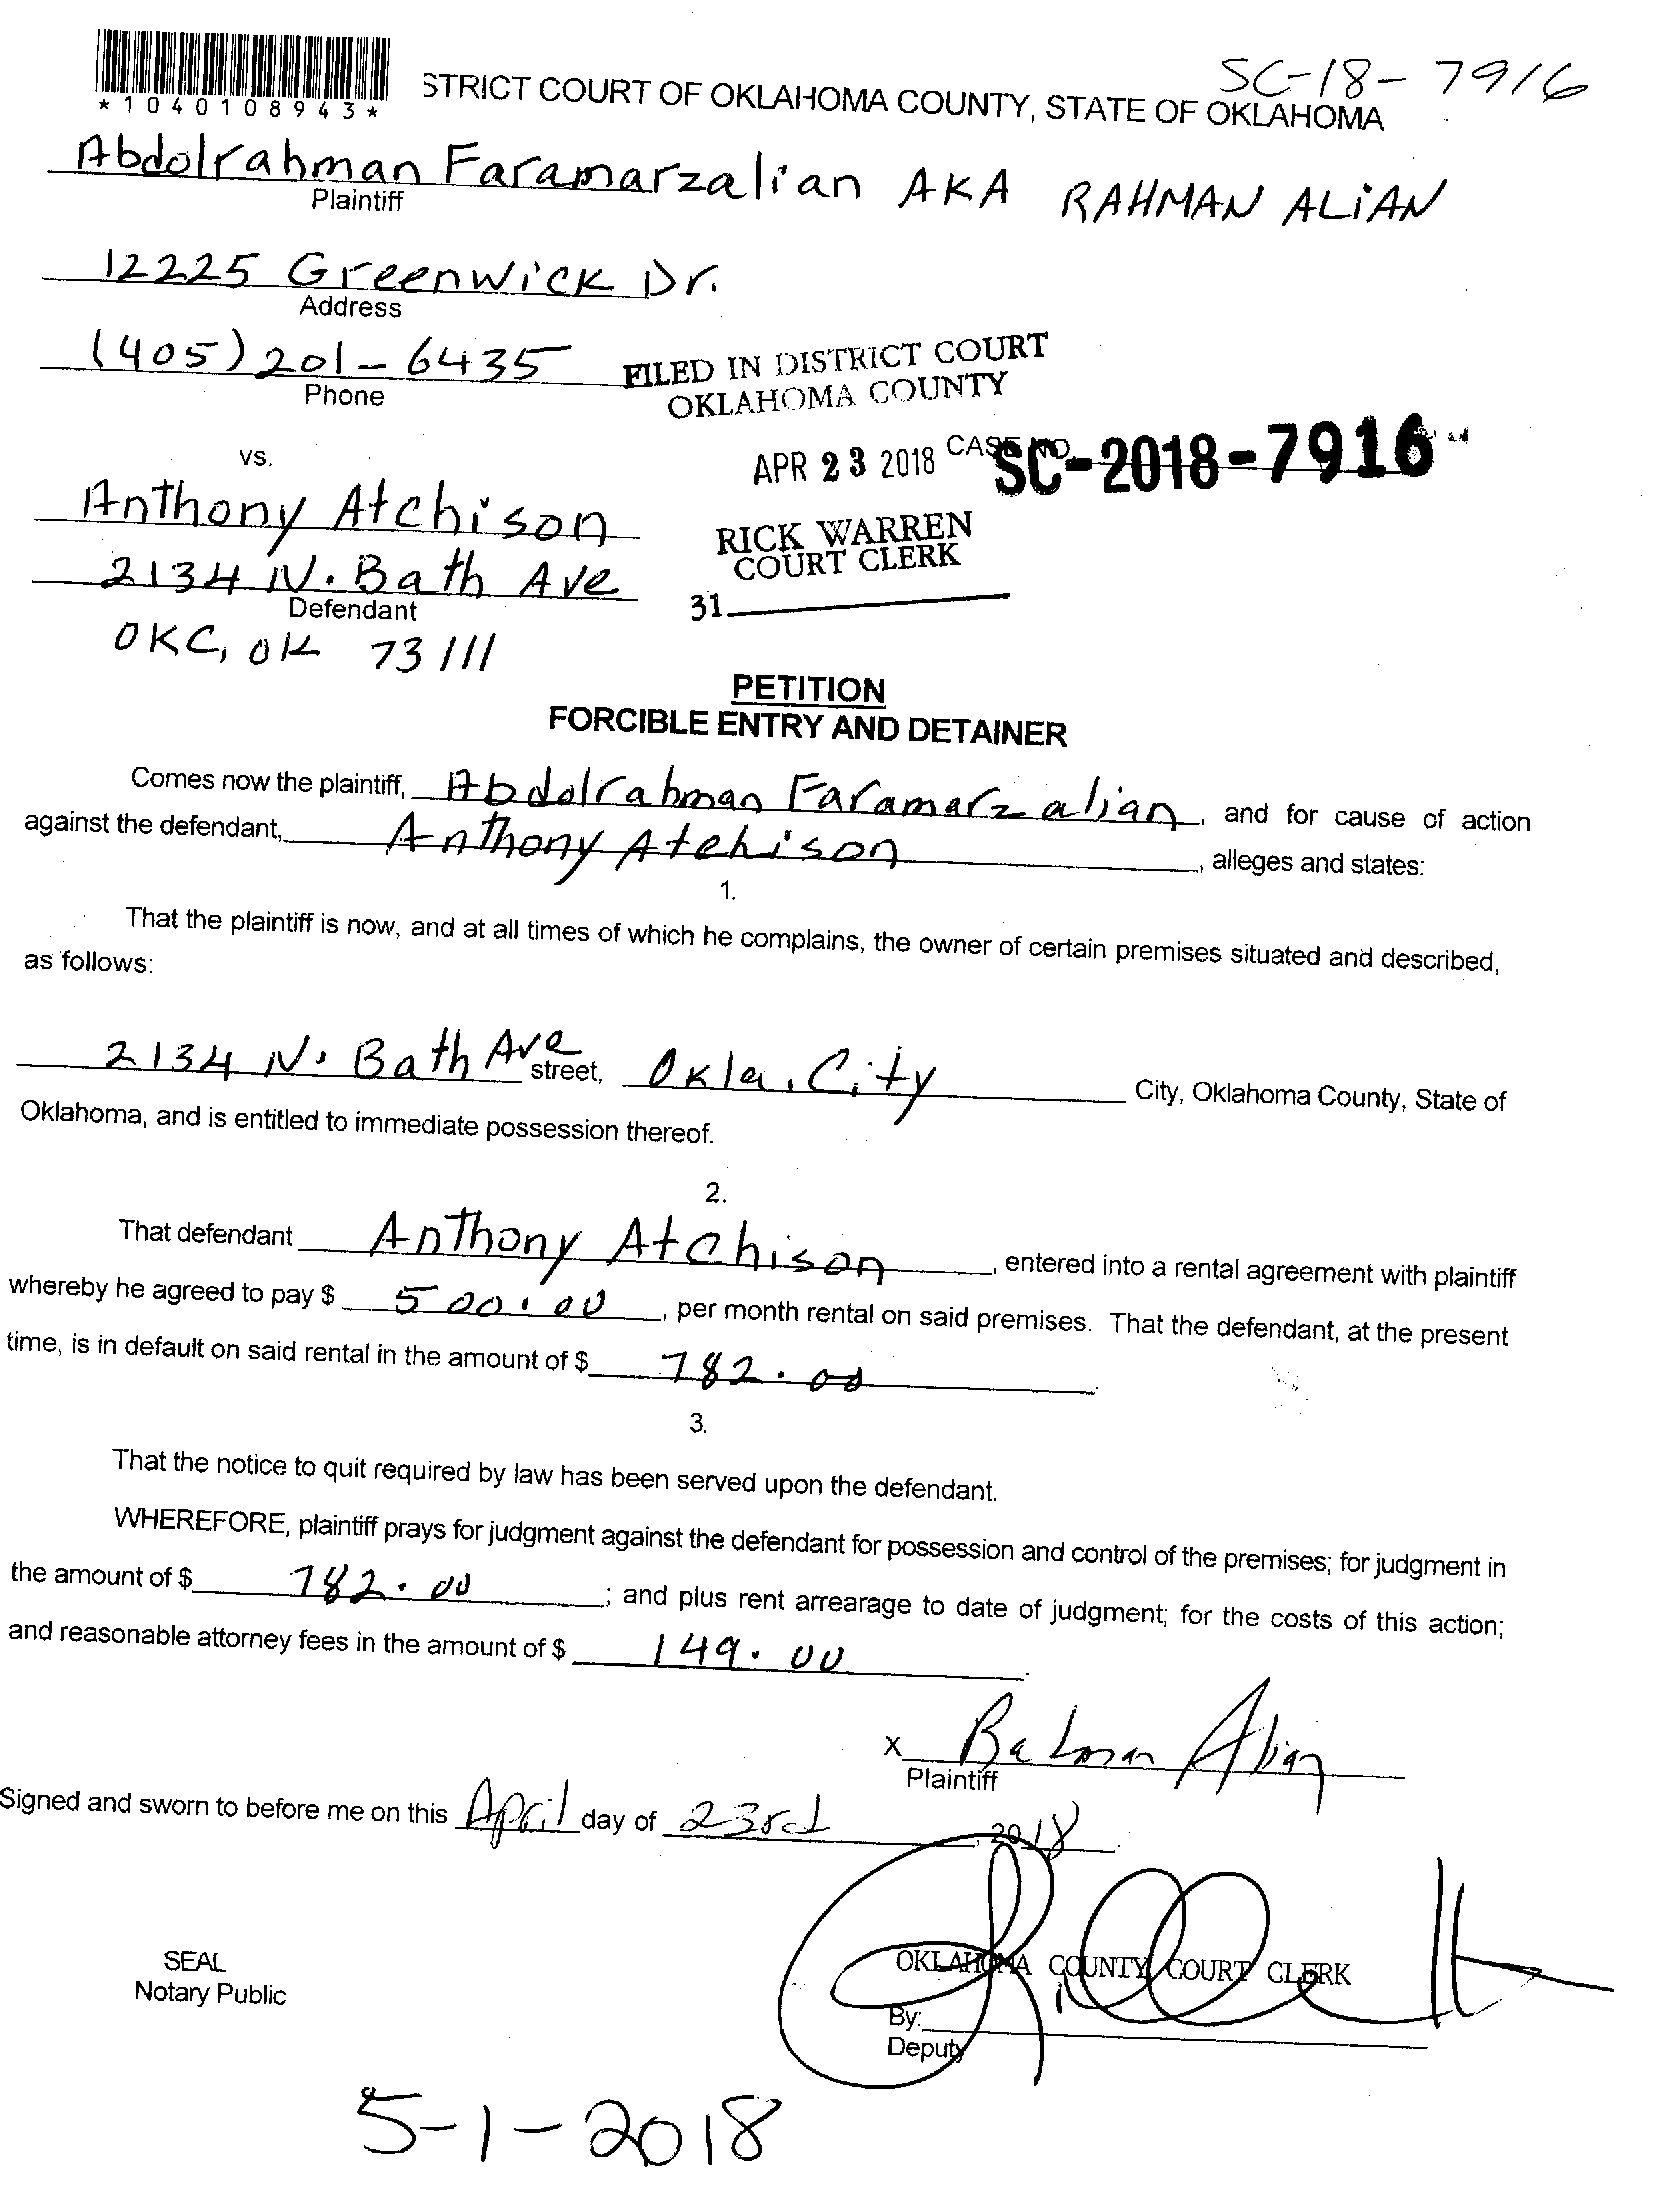 SC-18-7916
*1040108943*
STRICT COURT OF OKLAHOMA COUNTY, STATE OF OKLAHOMA
Abdolrahman Faramarzalian AKA RAHMAN ALIAN
Plaintiff
12225 Greenwick Dr.
Address
(405) 201-6435
Phone
FILED IN DISTRICT COURT
OKLAHOMA COUNTY
vs.
APR 23 2018
CASE NO.
SC-2018-7916
Anthony Atchison
RICK WARREN
COURT CLERK
2134 N. Bath Ave
Defendant
31
OKC, OK 73111
PETITION
FORCIBLE ENTRY AND DETAINER
Comes now the plaintiff, Abdolrahman Faramarzalian, and for cause of action
against the defendant, Anthony Atchison, alleges and states:
1.
That the plaintiff is now, and at all times of which he complains, the owner of certain premises situated and described,
as follows:
2134 N. Bath Ave street, Okla. City City, Oklahoma County, State of
Oklahoma, and is entitled to immediate possession thereof.
2.
That defendant Anthony Atchison, entered into a rental agreement with plaintiff
whereby he agreed to pay $ 500.00, per month rental on said premises. That the defendant, at the present
time, is in default on said rental in the amount of $ 782.00.
3.
That the notice to quit required by law has been served upon the defendant.
WHEREFORE, plaintiff prays for judgment against the defendant for possession and control of the premises; for judgment in
the amount of $ 782.00; and plus rent arrearage to date of judgment; for the costs of this action;
and reasonable attorney fees in the amount of $ 149.00.
X Rahman Alian
Plaintiff
Signed and sworn to before me on this April day of 23rd, 2018.
SEAL
Notary Public
OKLAHOMA COUNTY COURT CLERK
By:
Deputy
5-1-2018